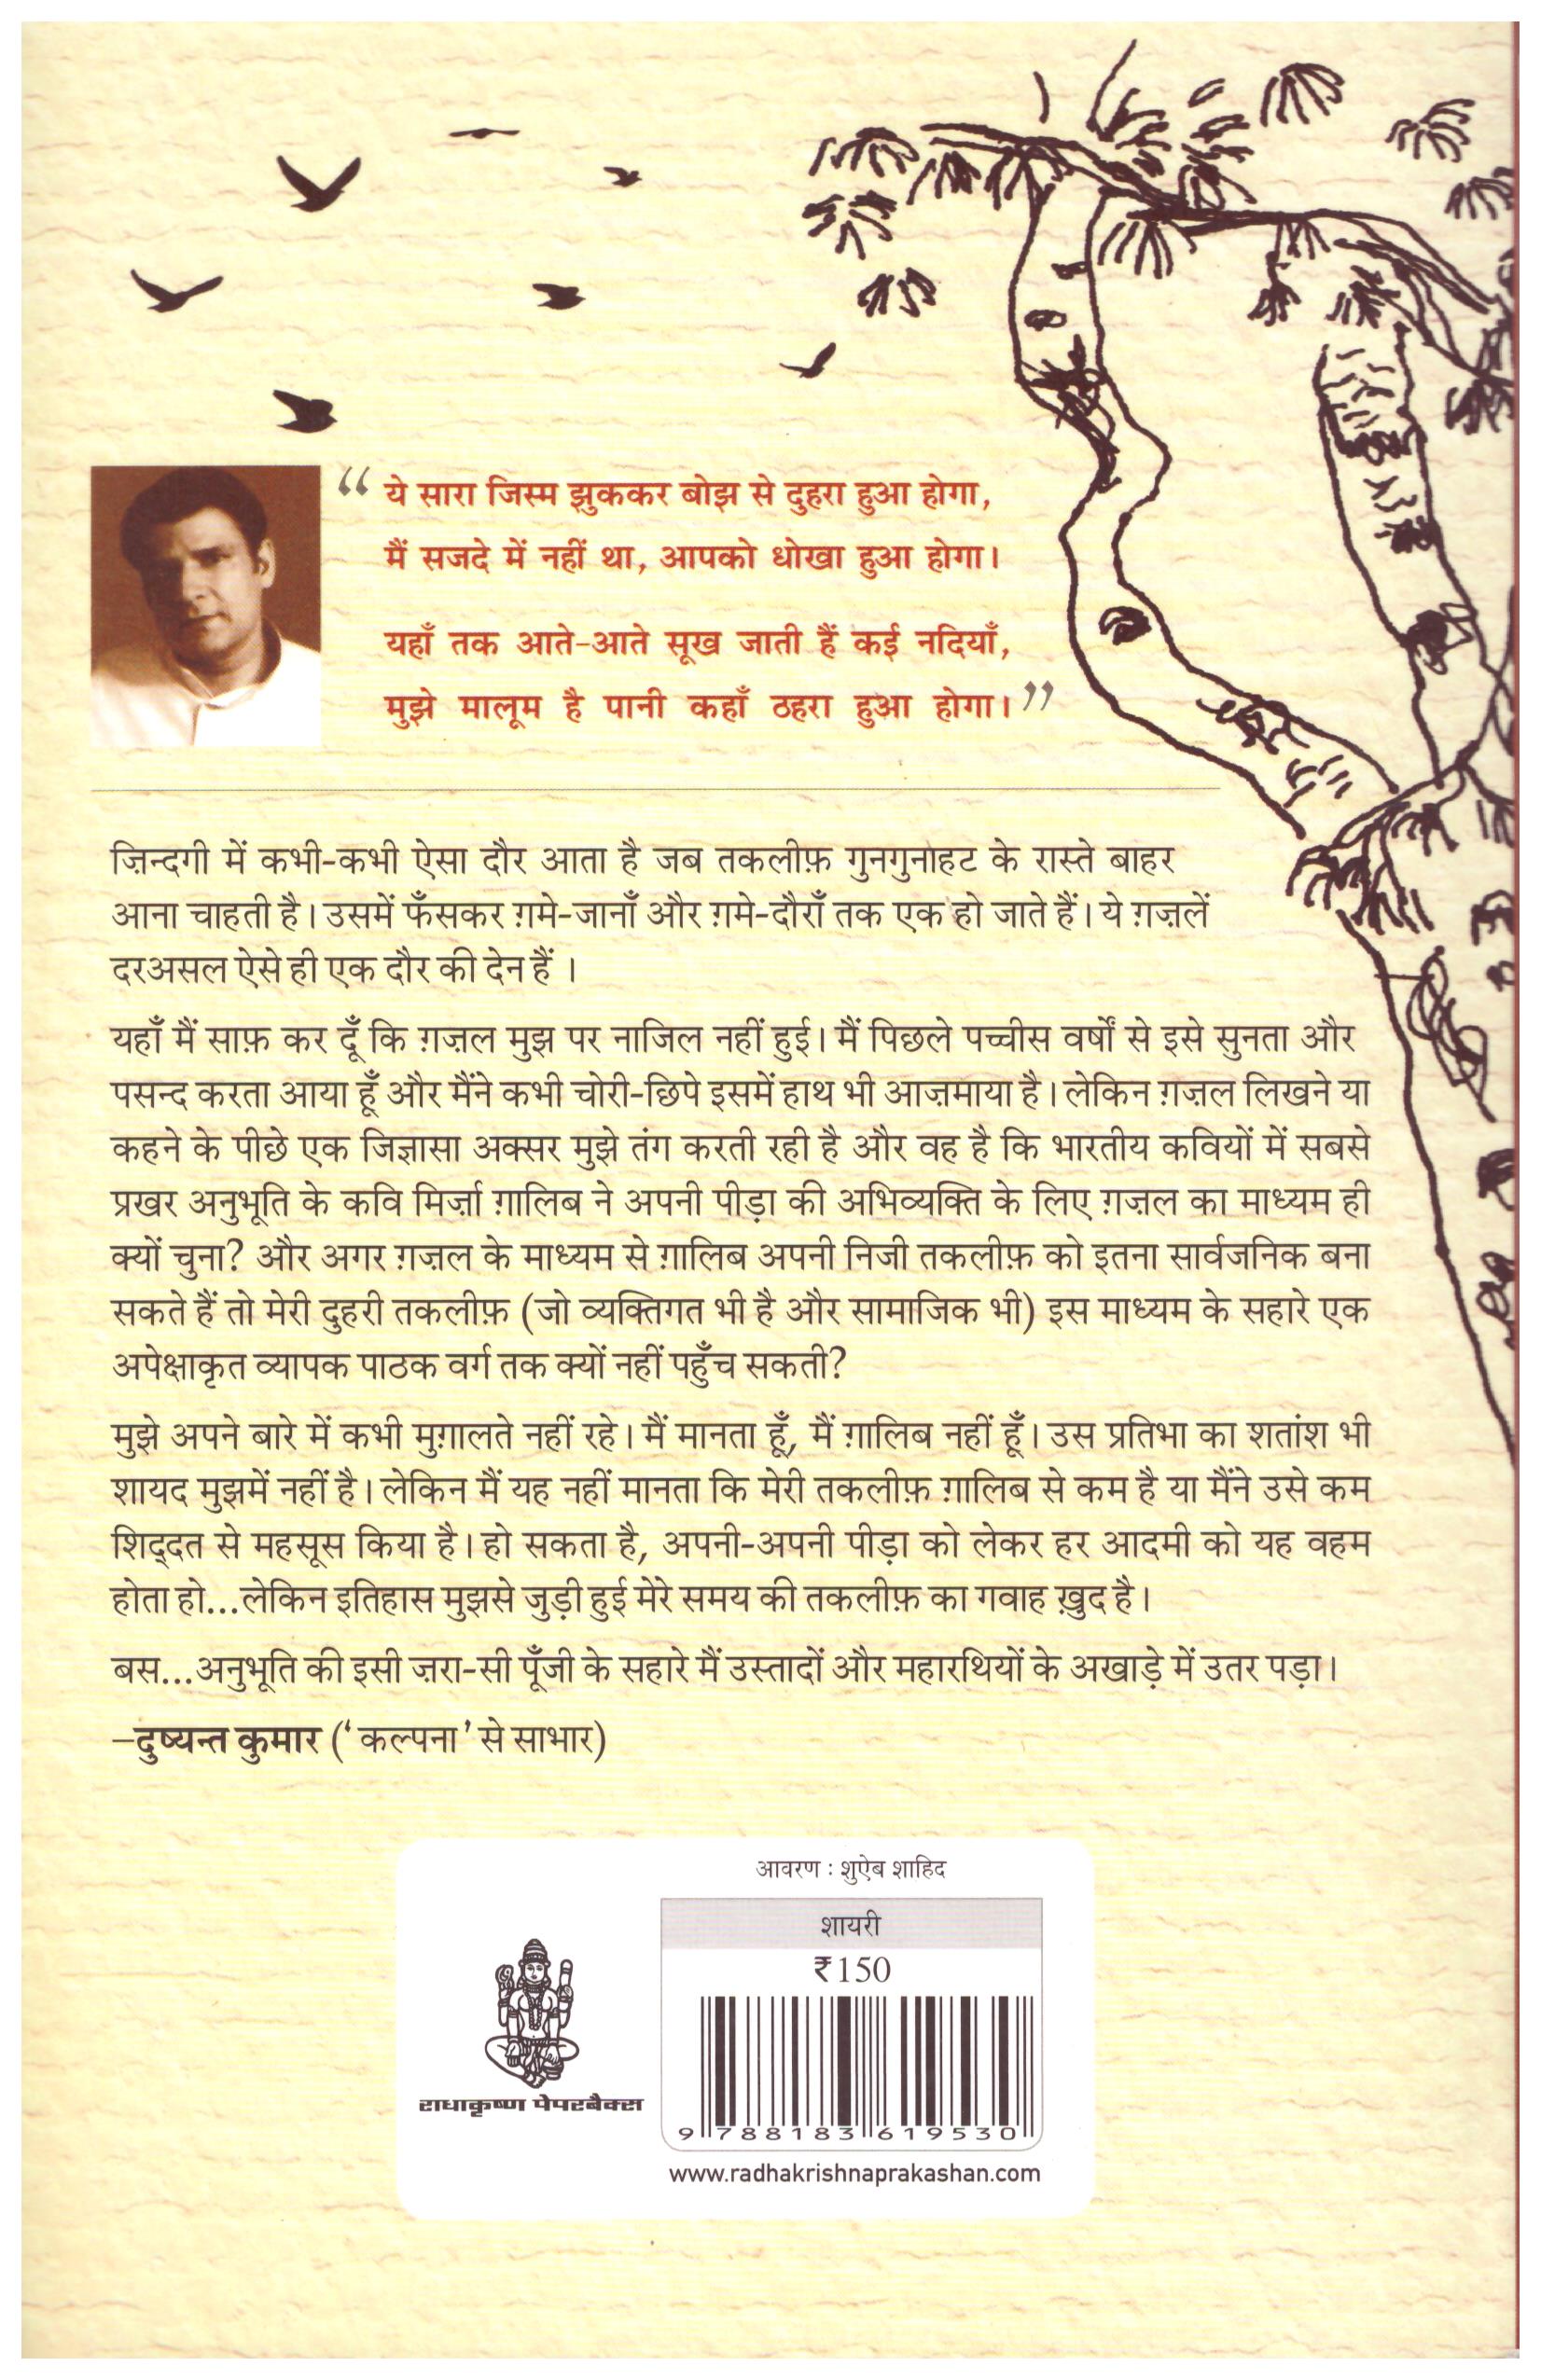 “ ये सारा जिस्म झुककर बोझ से दुहरा हुआ होगा,
मैं सजदे में नहीं था, आपको धोखा हुआ होगा।
यहाँ तक आते-आते सूख जाती हैं कई नदियाँ,
मुझे मालूम है पानी कहाँ ठहरा हुआ होगा। ”
ज़िन्दगी में कभी-कभी ऐसा दौर आता है जब तकलीफ़ गुनगुनाहट के रास्ते बाहर
आना चाहती है। उसमें फँसकर ग़मे-जानाँ और ग़मे-दौराँ तक एक हो जाते हैं। ये ग़ज़लें
दरअसल ऐसे ही एक दौर की देन हैं ।
यहाँ मैं साफ़ कर दूँ कि ग़ज़ल मुझ पर नाजिल नहीं हुई। मैं पिछले पच्चीस वर्षों से इसे सुनता और
पसन्द करता आया हूँ और मैंने कभी चोरी-छिपे इसमें हाथ भी आज़माया है। लेकिन ग़ज़ल लिखने या
कहने के पीछे एक जिज्ञासा अक्सर मुझे तंग करती रही है और वह है कि भारतीय कवियों में सबसे
प्रखर अनुभूति के कवि मिर्ज़ा ग़ालिब ने अपनी पीड़ा की अभिव्यक्ति के लिए ग़ज़ल का माध्यम ही
क्यों चुना? और अगर ग़ज़ल के माध्यम से ग़ालिब अपनी निजी तकलीफ़ को इतना सार्वजनिक बना
सकते हैं तो मेरी दुहरी तकलीफ़ (जो व्यक्तिगत भी है और सामाजिक भी) इस माध्यम के सहारे एक
अपेक्षाकृत व्यापक पाठक वर्ग तक क्यों नहीं पहुँच सकती?
मुझे अपने बारे में कभी मुग़ालते नहीं रहे। मैं मानता हूँ, मैं ग़ालिब नहीं हूँ। उस प्रतिभा का शतांश भी
शायद मुझमें नहीं है। लेकिन मैं यह नहीं मानता कि मेरी तकलीफ़ ग़ालिब से कम है या मैंने उसे कम
शिद्‌दत से महसूस किया है। हो सकता है, अपनी-अपनी पीड़ा को लेकर हर आदमी को यह वहम
होता हो...लेकिन इतिहास मुझसे जुड़ी हुई मेरे समय की तकलीफ़ का गवाह ख़ुद है।
बस...अनुभूति की इसी ज़रा-सी पूँजी के सहारे मैं उस्तादों और महारथियों के अखाड़े में उतर पड़ा।
–दुष्यन्त कुमार (‘कल्पना’ से साभार)
आवरण : शुऐब शाहिद
शायरी
₹150
राधाकृष्ण पेपरबैक्स
9 788183 619530
www.radhakrishnaprakashan.com